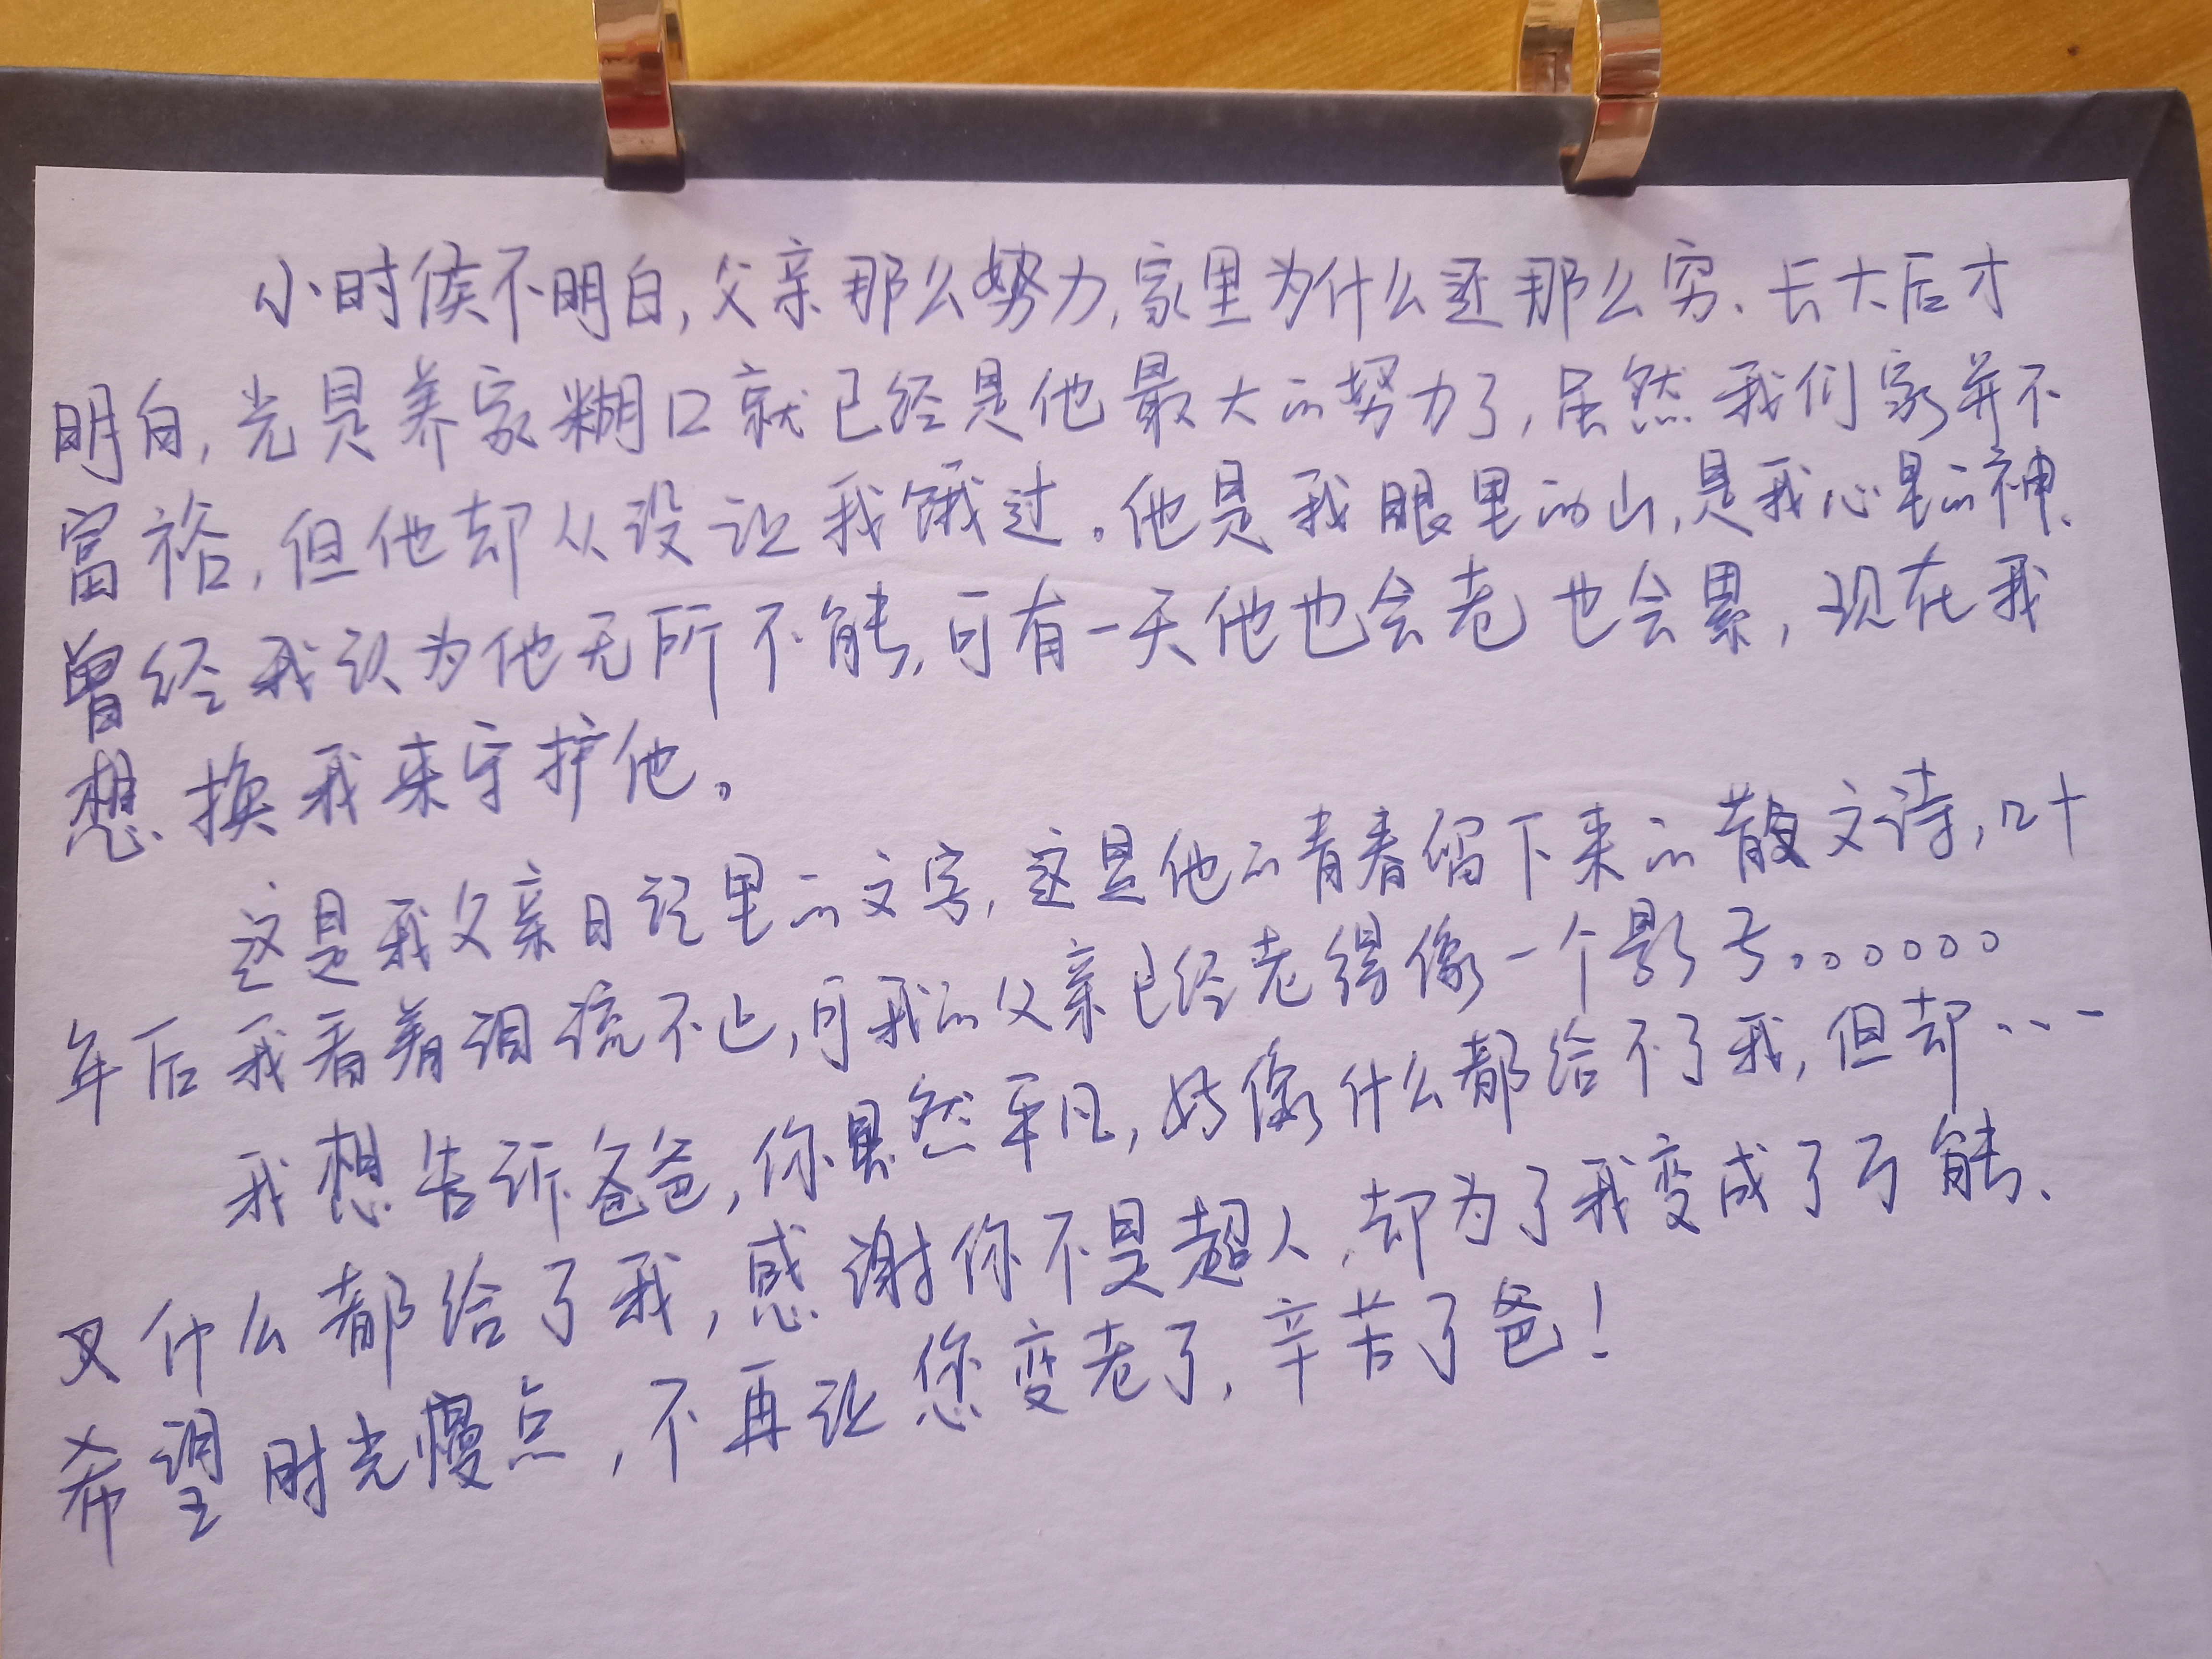 小时候不明白,父亲那么努力,家里为什么还那么穷、长大后才
明白,光是养家糊口就已经是他最大的努力了,虽然我们家并不
富裕,但他却从没让我饿过。他是我眼里的山,是我心里的神、
曾经我认为他无所不能,可有一天他也会老也会累,现在我
想换我来守护他。
这是我父亲日记里的文字,这是他的青春留下来的散文诗,几十
年后我看着泪流不止,可我的父亲已经老得像一个影子。。。。。。
我想告诉爸爸,你虽然平凡,好像什么都给不了我,但却...
又什么都给了我,感谢你不是超人,却为了我变成了万能、
希望时光慢点,不再让您变老了,辛苦了爸!